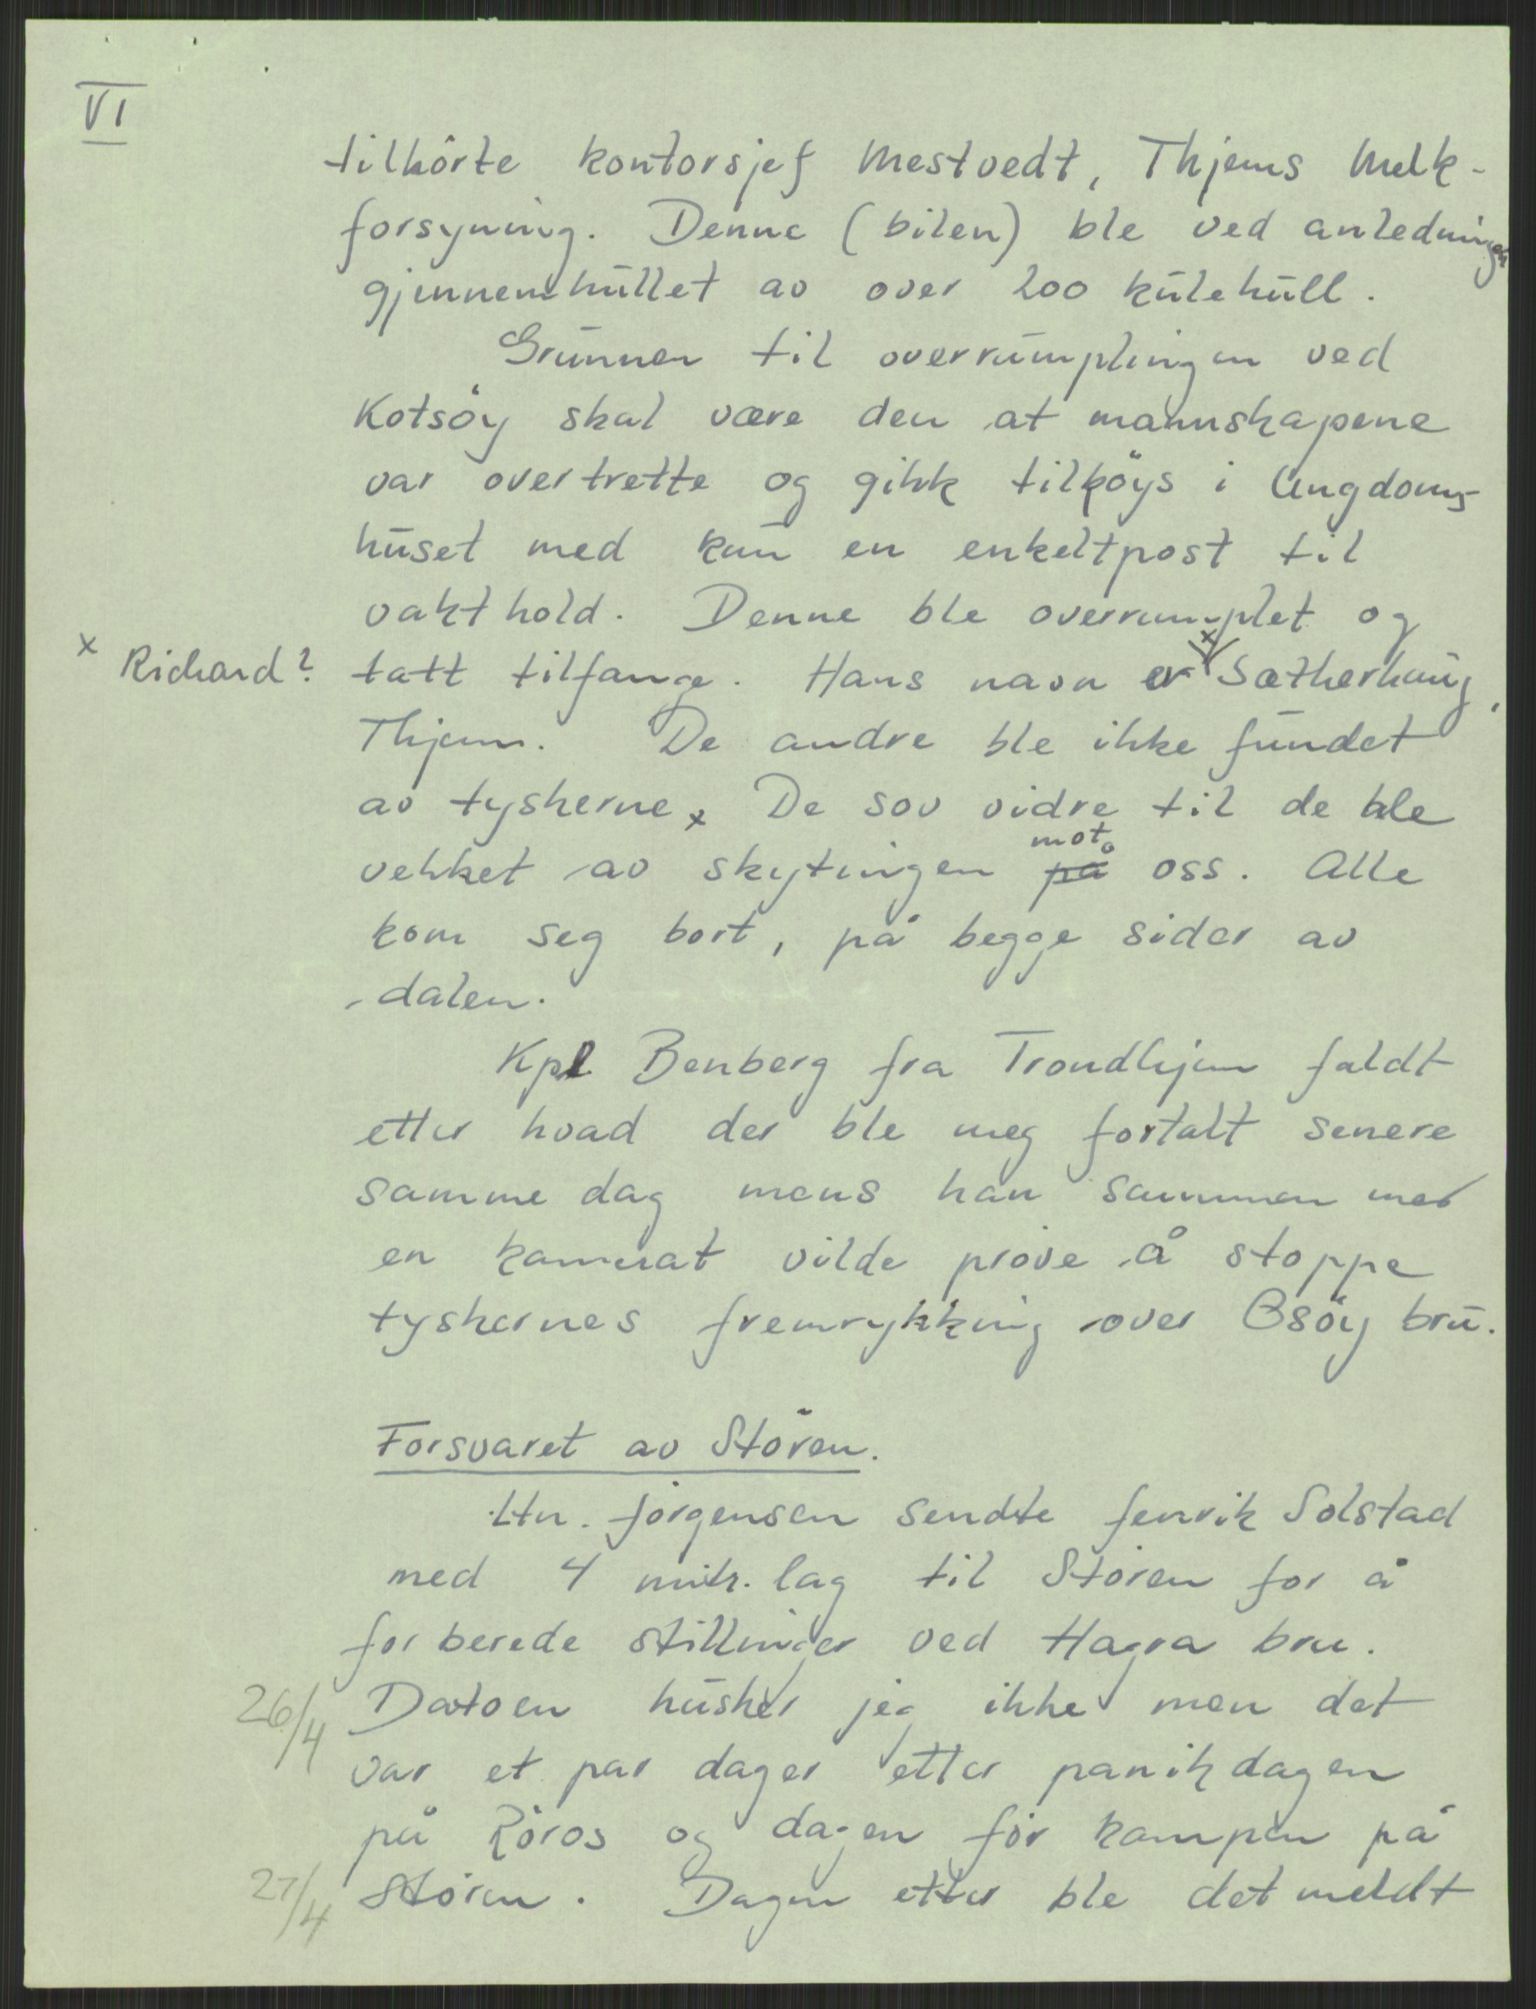 VI
tilhörte kontorsjef Mestvedt, Thjems Melk-
forsyning. Denne (bilen) ble ved anledningen
gjennemhullet av over 200 kulehull.
Grunnen til overrumplingen ved
Kotsöy skal være den at mannskapene
var overtrette og gikk tilköys i Ungdoms-
huset med kun en enkeltpost til
vakthold. Denne ble overrumplet og
x Richard? tatt tilfange. Hans navn er x Sætherhaug,
Thjem. De andre ble ikke fundet
av tyskerne. De sov vidre til de ble
vekket av skytingen på mot oss. Alle
kom seg bort, på begge sider av
dalen.
Kpl Benberg fra Trondhjem faldt
etter hvad der ble meg fortalt senere
samme dag mens han sammen med
en kamerat vilde pröve å stoppe
tyskernes fremrykking over Osöy bru.
Forsvaret av Stören.
Ltn. Jörgensen sendte fenrik Solstad
med 4 mitr. lag til Stören for å
forberede stillinger ved Hagra bru.
26/4 Datoen husker jeg ikke men det
var et par dager etter panikdagen
på Röros og dagen för kampen på
27/4 Stören. Dagen etter ble det meldt